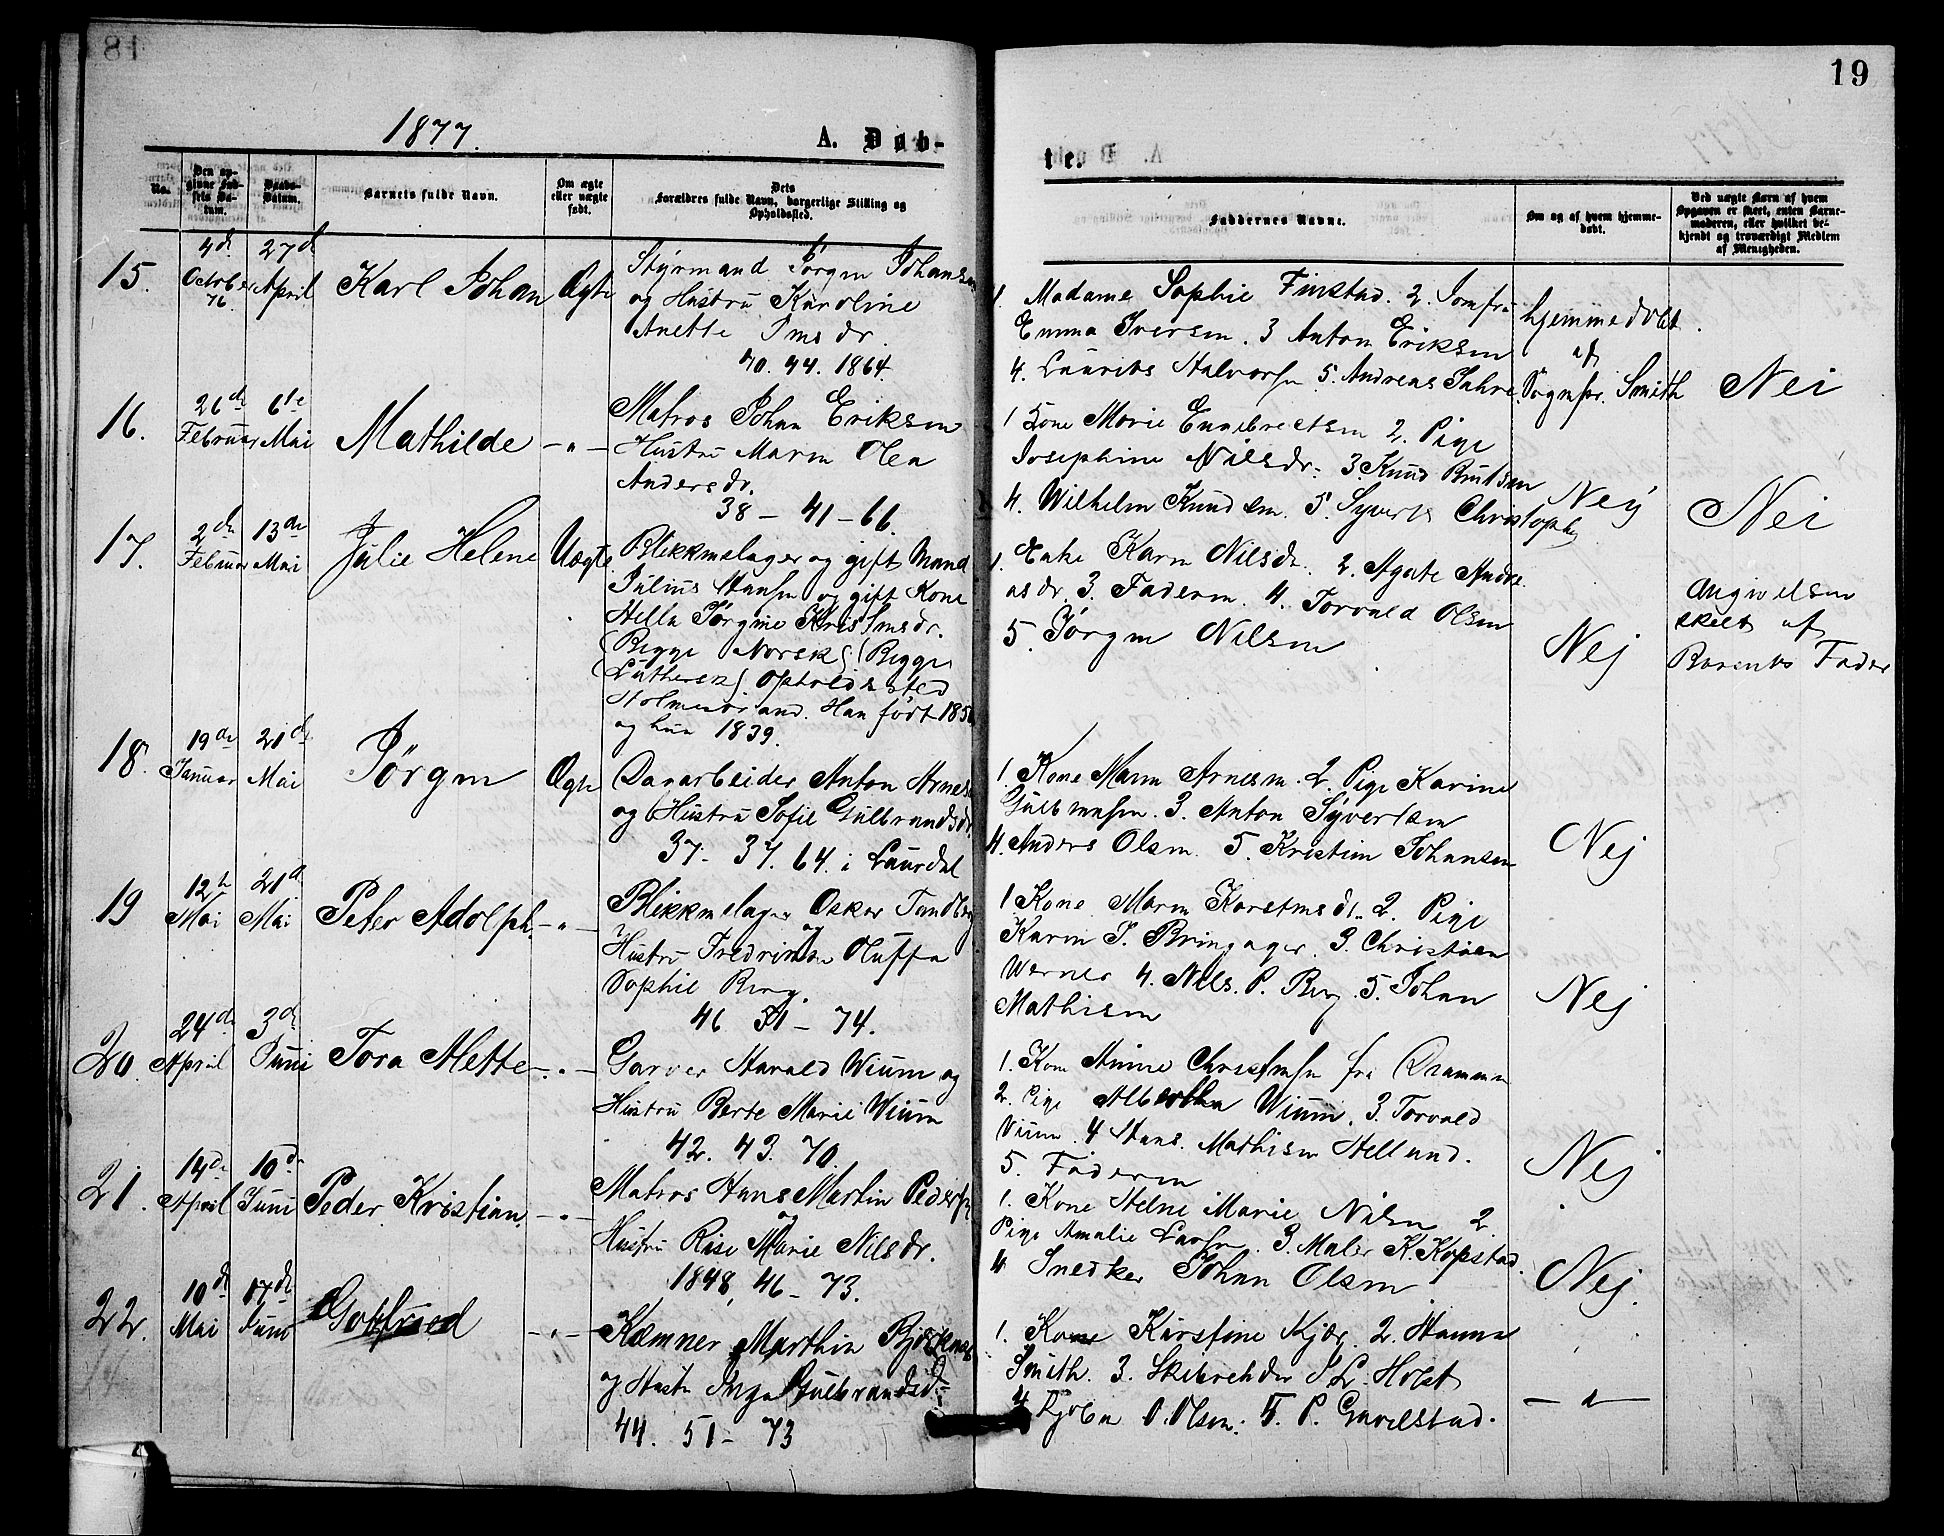 18
1877.
A. Døb-
No.
Den op-
givne Fød-
sels Da-
tum.
Daabs-
Datum.
Barnets fulde Navn.
Om ægte
eller uægte
født.
Dets
Forældres fulde Navn, borgerlige Stilling og
Opholdssted.
15.
4de
October
76.
27de
April
Karl Johan
Ægte
Styrmand Jørgen Johansen
og Hustru Karoline
Anette Jensdr.
40. 44. 1864.
16.
26de
Februar
6te
Mai
Mathilde
— " —
Matros Johan Eriksen
Hustru Maren Olea
Andersdr.
38 — 41 — 66.
17.
2de
Februar
13de
Mai
Julie Helene
Uægte
Blikkenslager og gift Mand
Julius Hansen og gift Kone
Hella Jørgine Kristensdr.
(Begge Norsk) (Begge
Luthersk). Opholdssted
Holmestrand. Han født 1850
og hun 1839.
18.
19de
Januar
21de
Mai
Jørgen
Ægte
Dagarbeider Anton Arnes
og Hustru Sofie Gulbrandsdr.
37 — 37. 64. i Laurdal
19
12te
Mai
21de
Mai
Peter Adolph.
— " —
Blikkenslager Oskar Tandberg
og
Hustru Fredrikke Oluffa
Sophie Berg.
46 51 — 74.
20.
24de
April
3de
Juni
Tora Alette
— " —
Garver Harald Wium og
Hustru Berte Marie Wium
42. 43. 70.
21.
14de
April
10de
Juni
Peder Kristian
— " —
Matros Hans Martin Pedersen
og
Hustru Rise Marie Nilsdr.
1848, 46 — 73.
22.
10de
Mai
17de
Juni
Gotfried
— " —
Kæmner Marthin Bjørknes
og Hustr Inga Gulbrandsd.
44. 51 — 73
19
te.
Faddernes Navne.
Om og af hvem hjemme-
døbt.
Ved uægte Børn af hvem
Opgaven er skeet, enten Barne-
moderen, eller hvilket be-
kjendt og troværdigt Medlem
af Menigheden.
1. Madame Sophie Finstad. 2. Jomfru
Emma Iversen. 3 Anton Eriksen
4. Laurits Halvorsen 5. Andreas Sahre.
hjemmedøbt
af
Sognepr. Smith
Nei
1 Kone Marie Engebretsen 2. Pige
Josephine Nilsdr. 3. Knud Bentsen
4. Wilhelm Knudsen. 5. Syvert Christoph
Nej
Nei
1. Enke Karen Nilsdr. 2. Agate Andre
asdr. 3. Faderen. 4. Torvald Olsen
5. Jørgen Nilsen
Nej
Angivelsen
skeet af
Barnets Fader
1. Kone Maren Arnesen. 2. Pige Karine
Gulbransen. 3. Anton Syvertsen
4. Anders Olsen. 5. Kristian Johansen
Nej
1 Kone Maren Karstensdr. 2. Pige
Karen J. Bringager. 3. Christian
Werner 4. Nils. P. Berg. 5. Johan
Mathisen
Nej
1. Kone Anne Christensen fra Drammen
2. Pige Albertha Wium. 3. Torvald
Wium. 4 Hans Mathisen Hellund.
5. Faderen
Nej
1. Kone Helene Marie Nilsen 2
Pige Amalie Larsen. 3. Maler K. Kopstad.
4. Snedker Johan Olsen
Nej.
1. Kone Kirstine Kjær. 2. Hanna
Smith. 3. Skibsreder J L. Holst
4 Kjøbm O. Olsen. 5. P. Gavelstad.
— " —